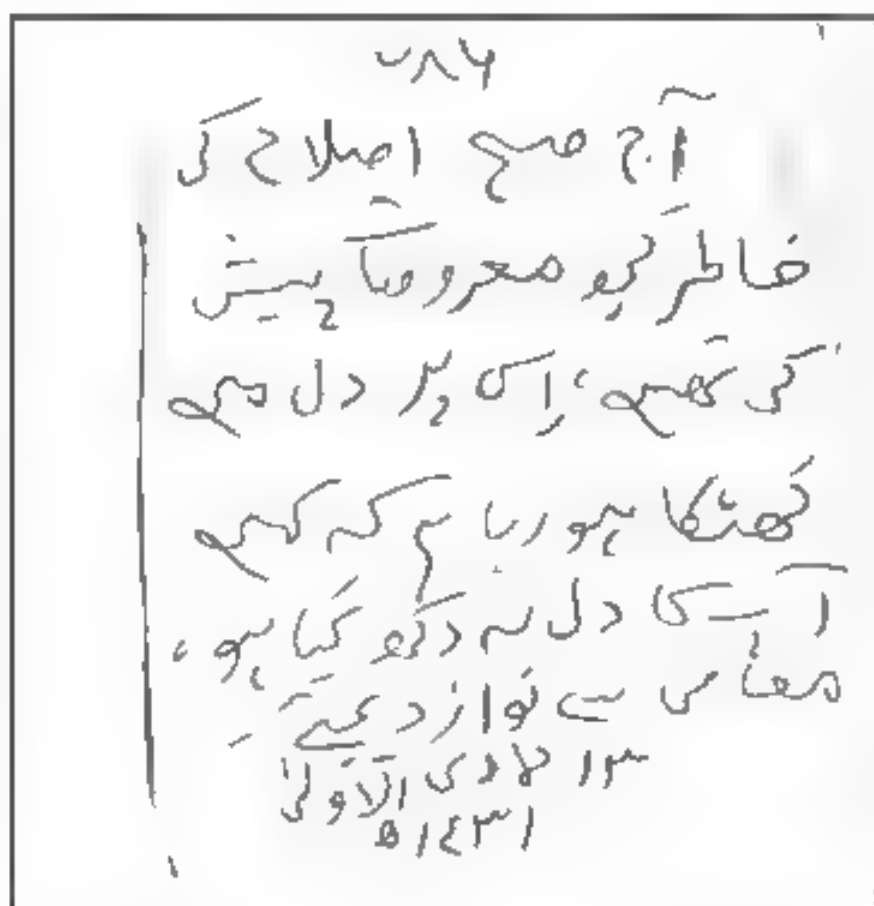 ۷۸۶
آج صبح اصلاح کی
خاطر کچھ معروضات پیش
کی تھیں، اِس پر دل میں
کھٹکا ہو رہا ہے کہ کہیں
آپ کا دل نہ دکھ گیا ہو،
معافی سے نواز دیجئے
۱۳ جمادی الاولیٰ
۱۴۳۱ھ